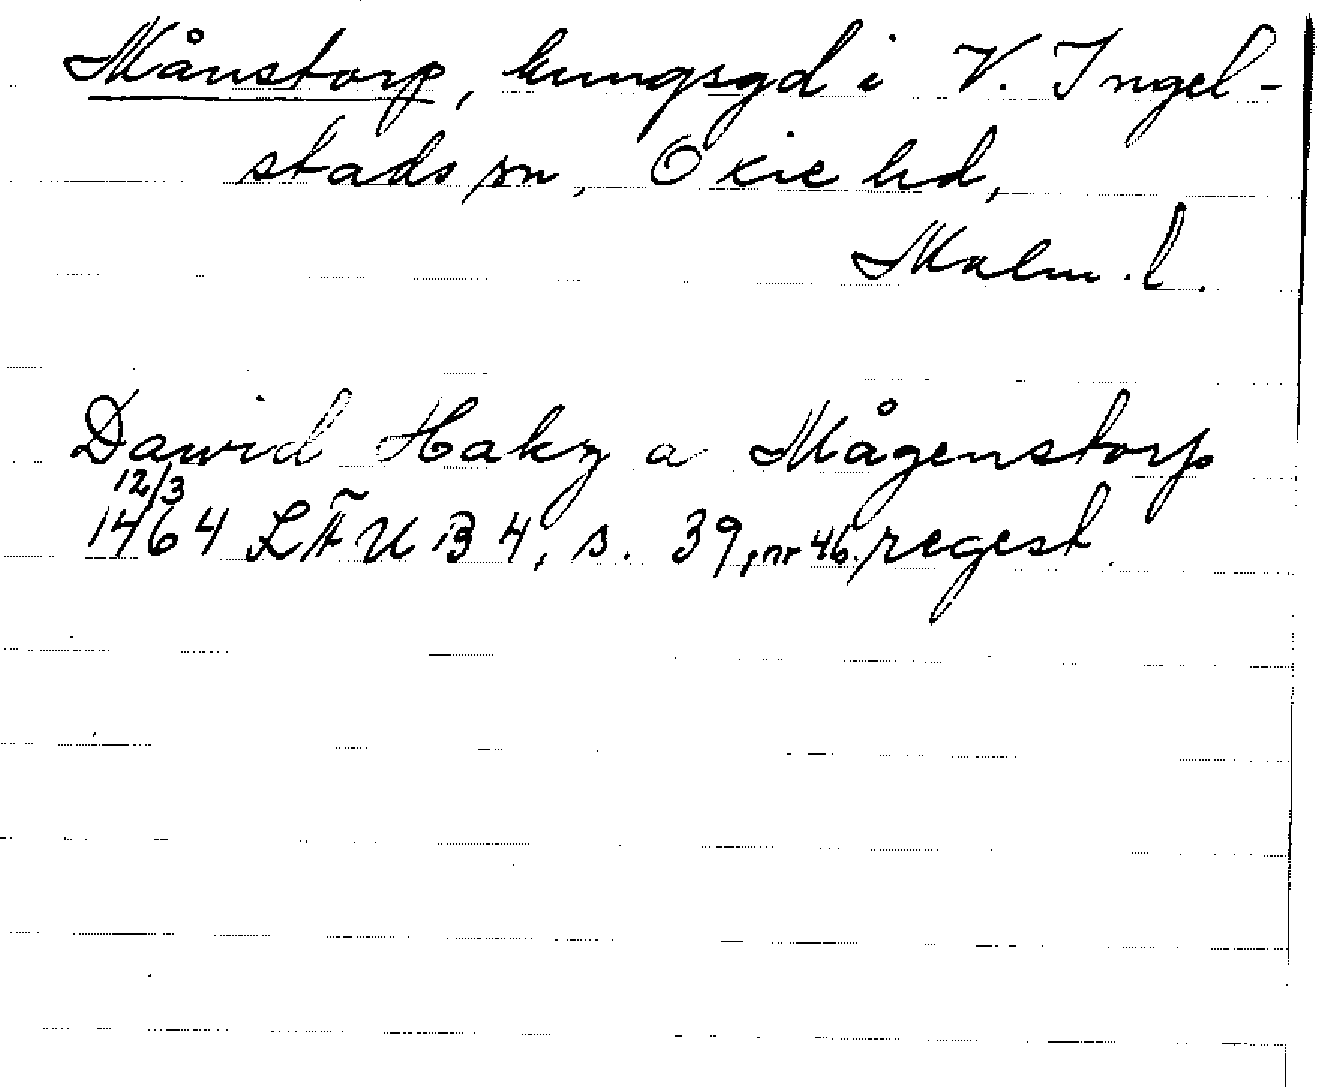 Månstorp, kungsgd i V. Ingel-
stads sn, Oxie hd,
Malm. l.
Dawid Hakz a Mågenstorp
12/3
1464 LÄUB 4, s. 39, nr 46. regest.